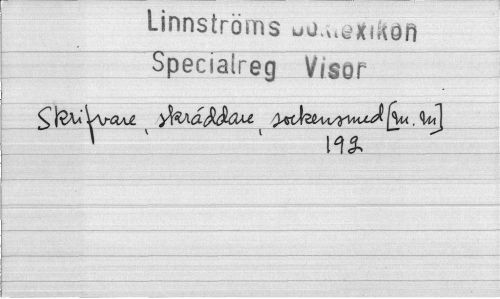 Linnströms Boklexikon
Specialreg Visor
Skrifvare, skräddare, sockensmed [m. m]
192